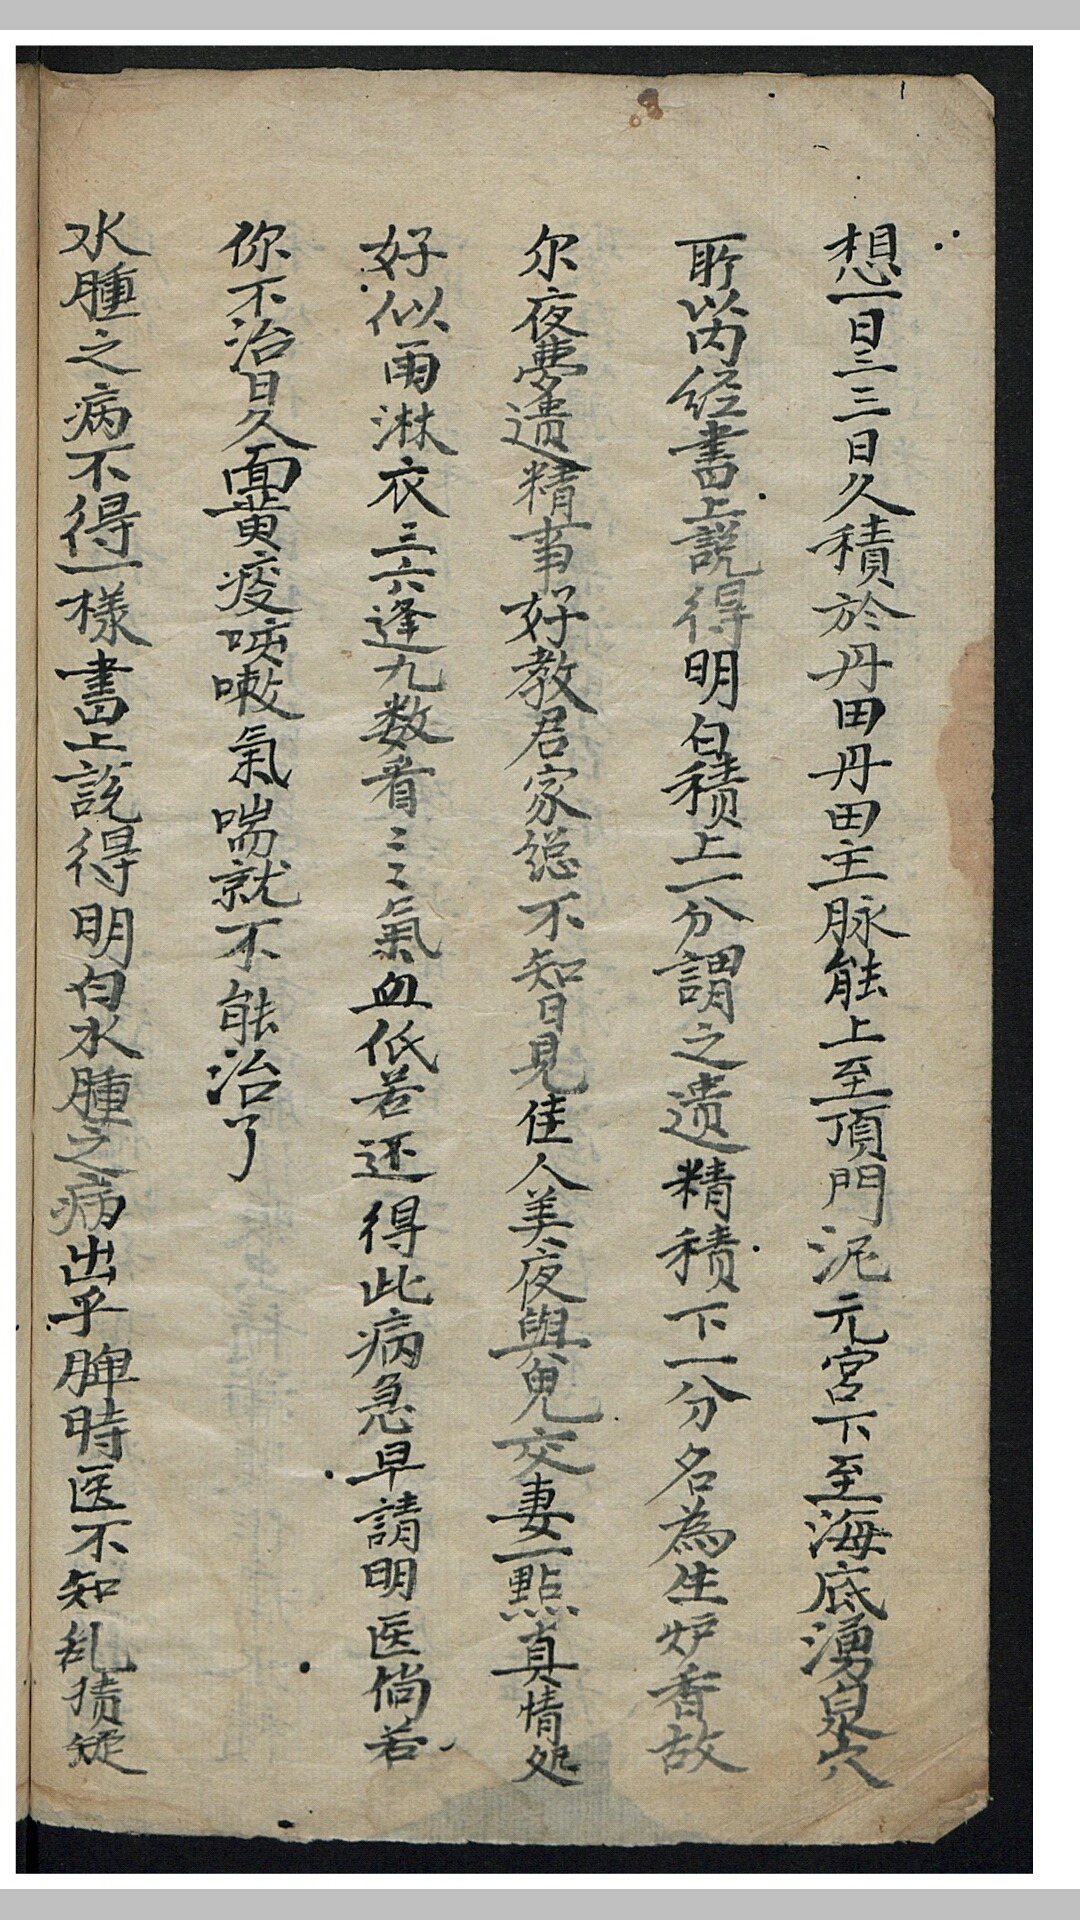 想一日三三日久積於丹田丹田主脉能上至頂門泥元宮下至海底湧泉穴
所以內經書上説得明白積上一分謂之遗精積下一分名為生炉香故
尔夜夢遗精事好教君家總不知日見佳人美夜與鬼交妻一點真情処
好似雨淋衣三六逢九数看三三氣血低若还得此病急早請明医倘若
你不治日久面黄痰咳嗽氣喘就不能治了
水腫之病不得一樣書上說得明白水腫之病出乎脾時医不知乱猜疑